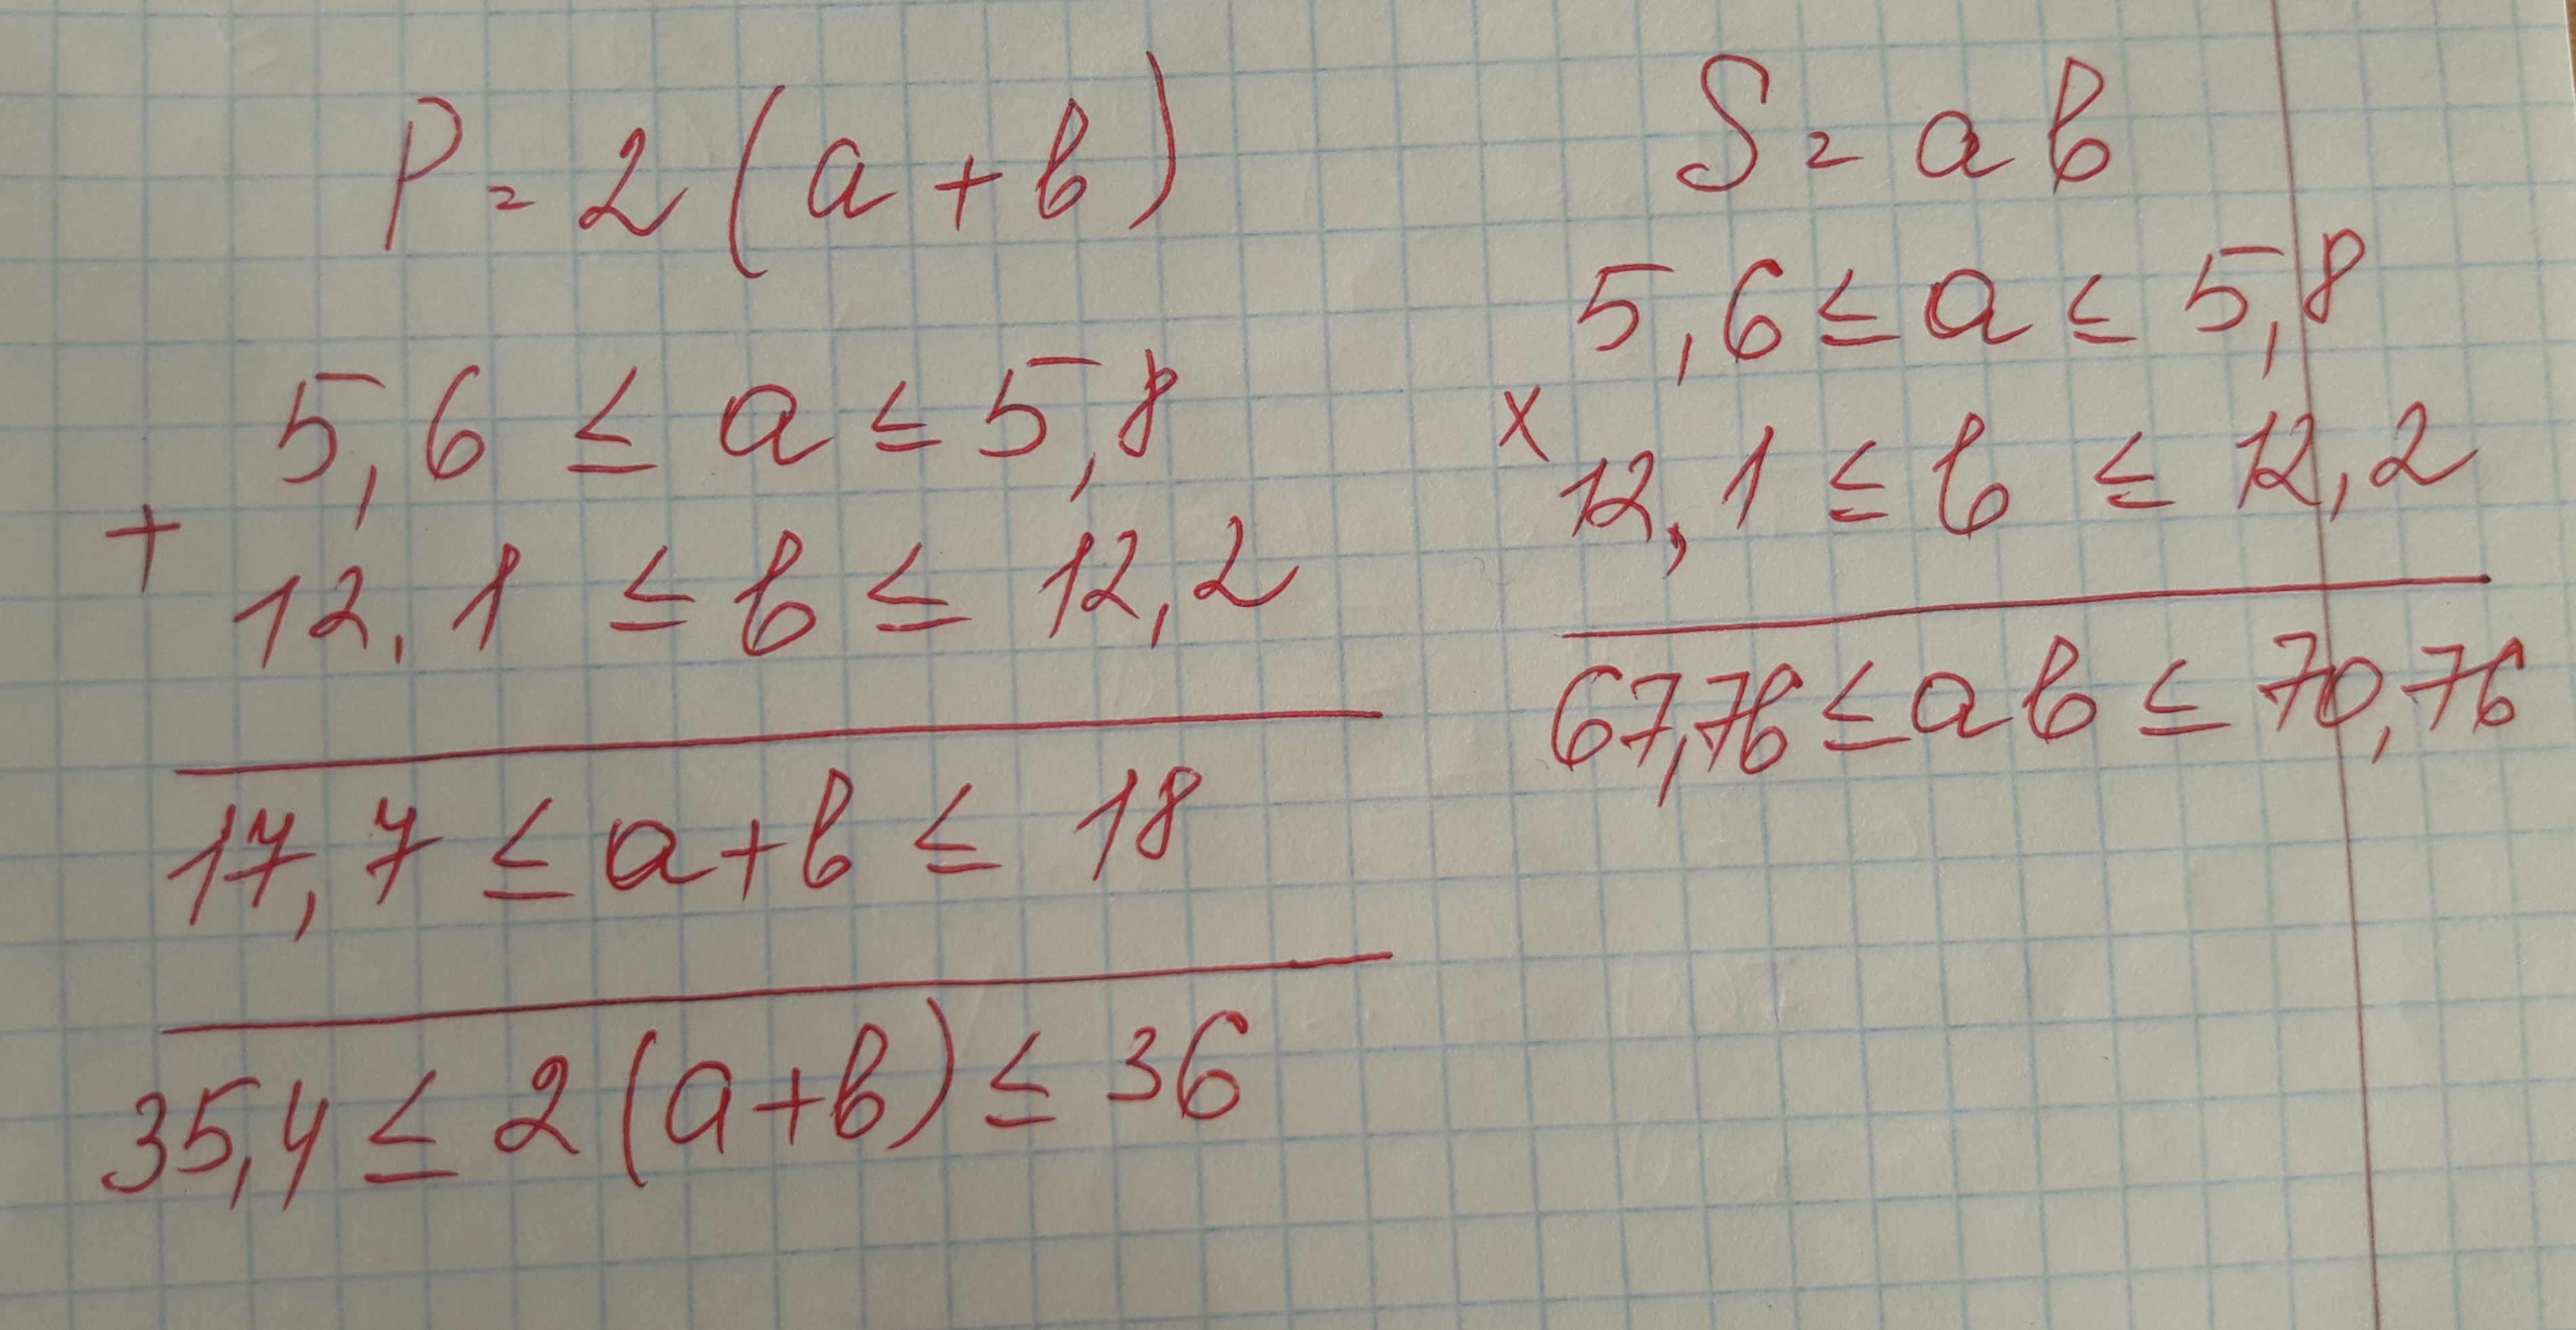 P = 2 (a + b)
5,6 ≤ a ≤ 5,8
+
12,1 ≤ b ≤ 12,2
17,7 ≤ a + b ≤ 18
35,4 ≤ 2 (a + b) ≤ 36
S = a b
5,6 ≤ a ≤ 5,8
×
12,1 ≤ b ≤ 12,2
67,76 ≤ a b ≤ 70,76